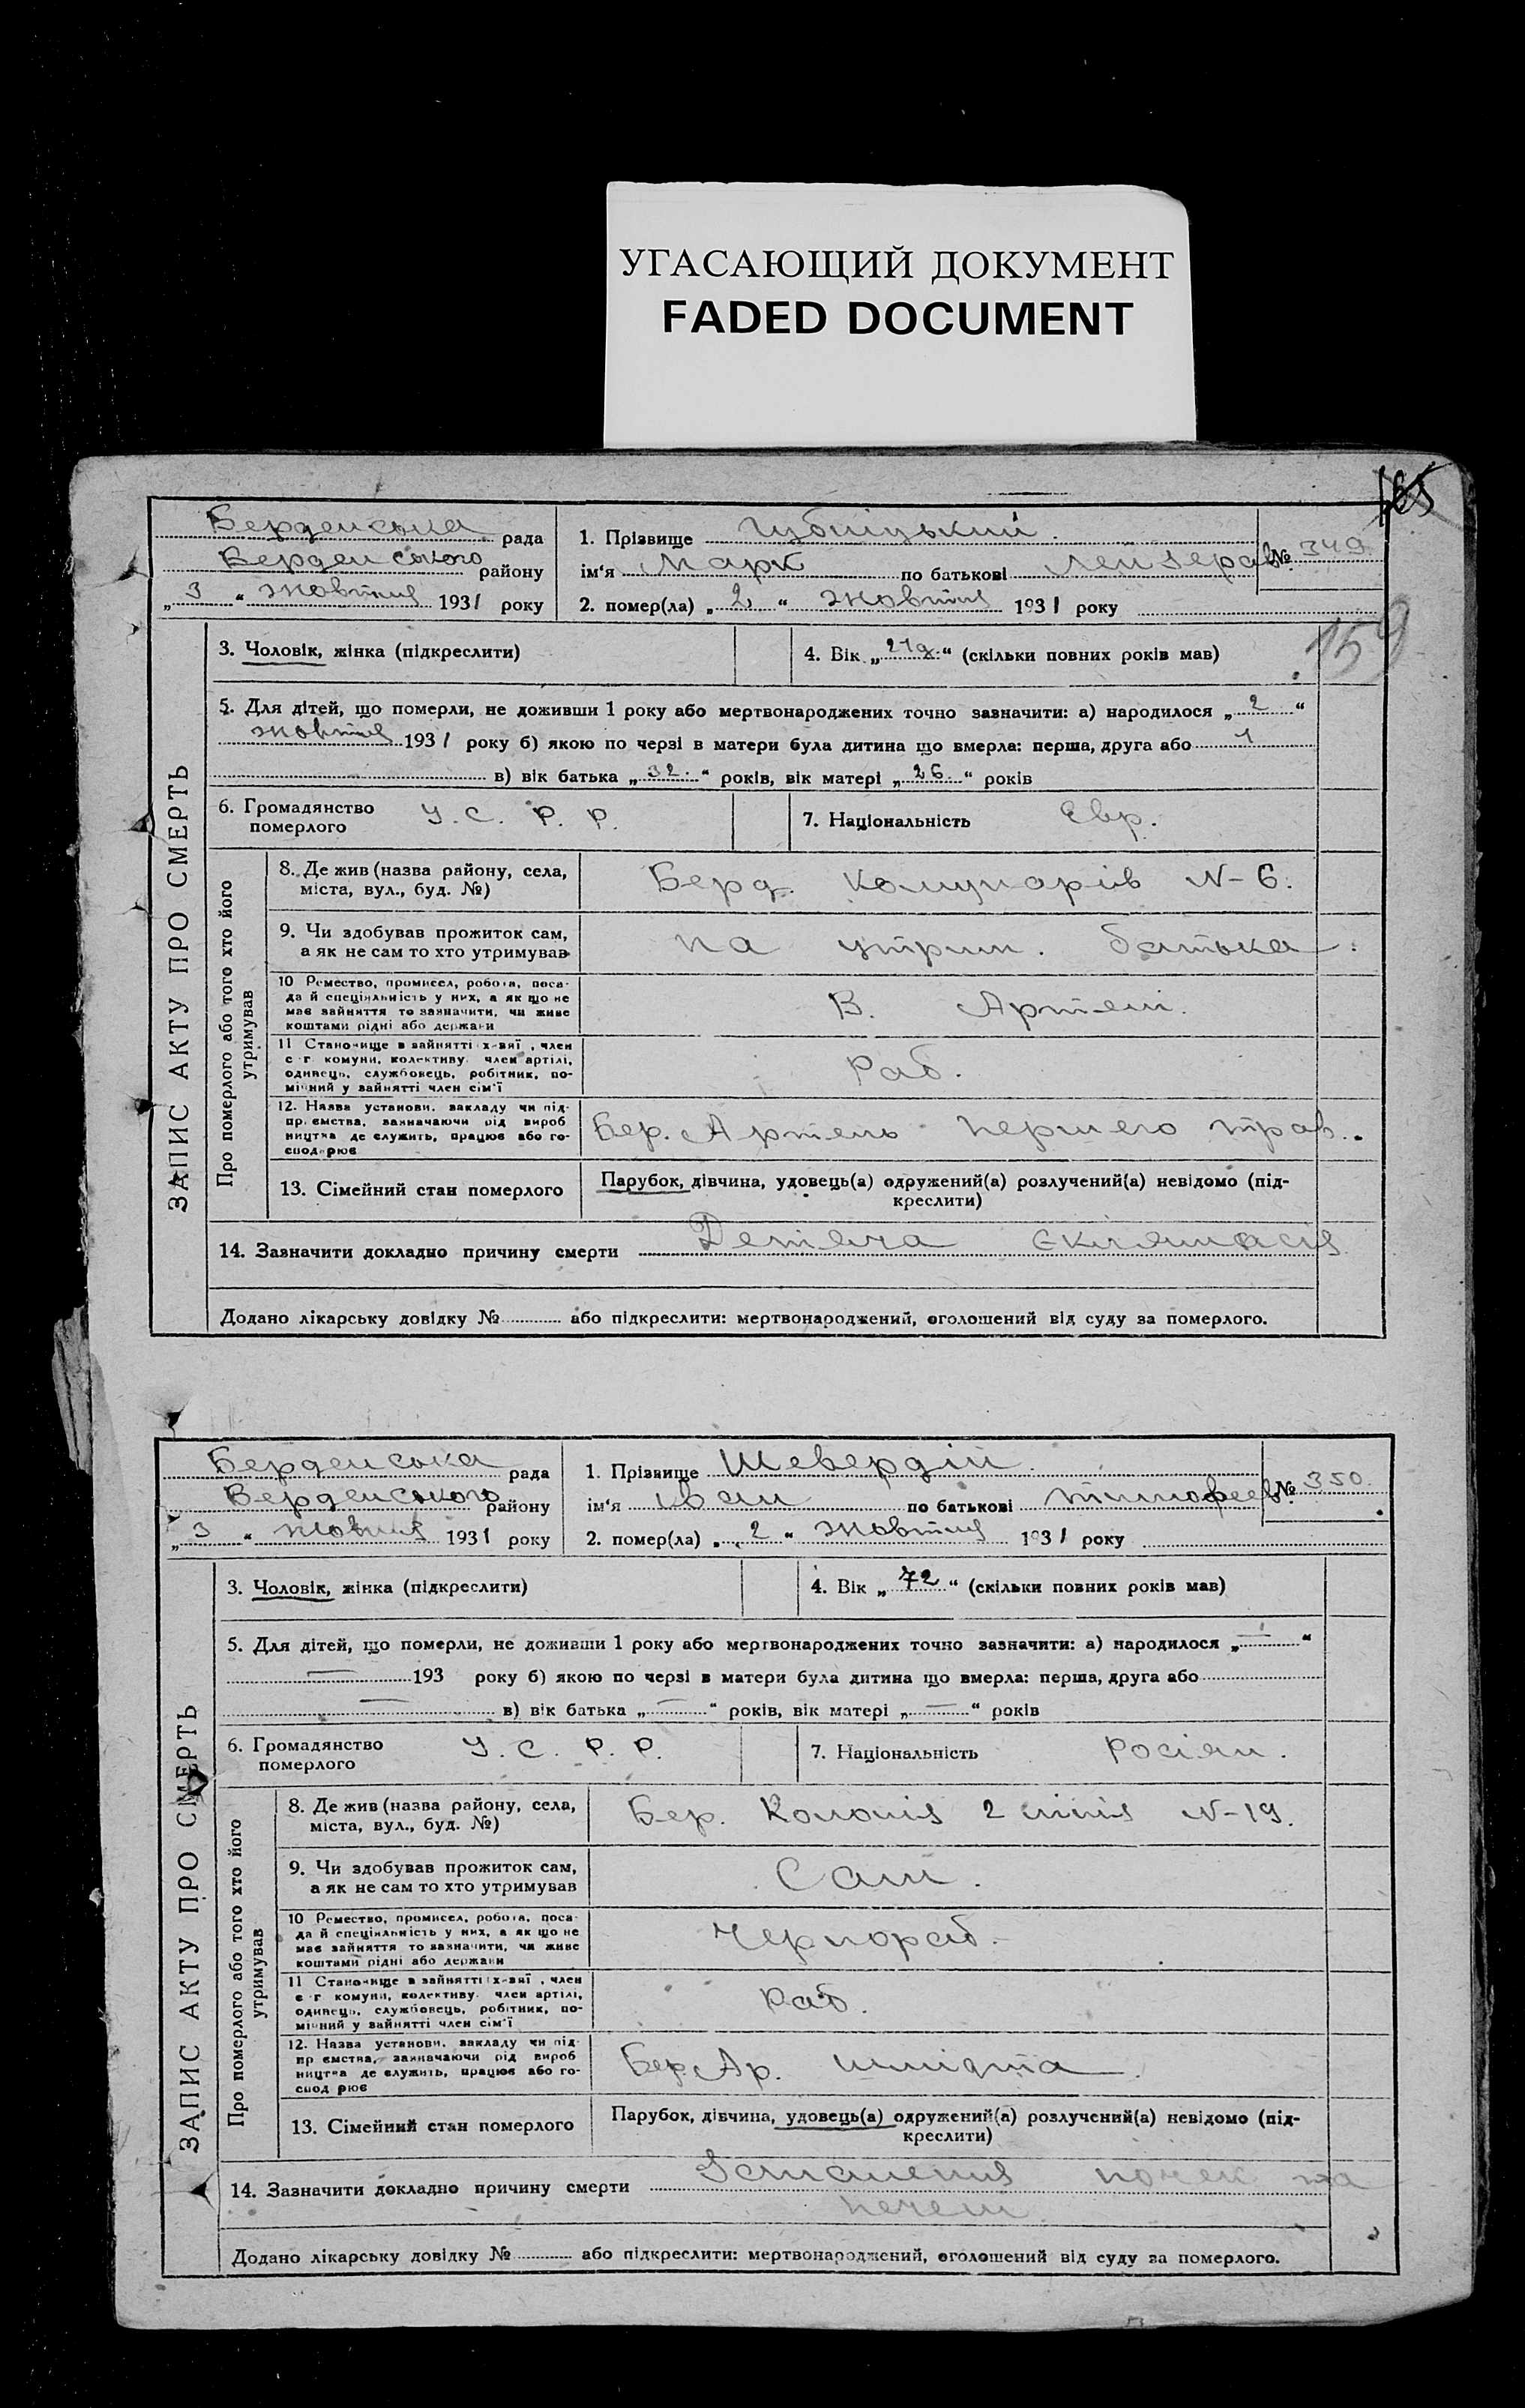 УГАСАЮЩИЙ ДОКУМЕНТ
FADED DOCUMENT
165
159
ЗАПИС АКТУ ПРО СМЕРТЬ
Берденська рада
Берденського району
„ 3 “ жовтня 1931 року
1. Прізвище Губніцький
ім‘я Марк по батькові Лейзеров
№ 349
2. помер(ла) „ 2 “ жовтня 1931 року
3. Чоловік, жінка (підкреслити)
4. Вік „ “ (скільки повних років мав)
5. Для дітей, що померли, не доживши 1 року або мертвонароджених точно зазначити: а) народилося „ 2 “
жовтня 1931 року б) якою по черзі в матери була дитина що вмерла: перша, друга або 1
в) вік батька „ 32. “ років, вік матері „ 26. “ років
6. Громадянство
померлого
У. С. Р. Р.
7. Національність Євр.
Про померлого або того хто його
утримував
8. Де жив (назва району, села,
міста, вул., буд. №)
Берд. Комунарів N-6.
9. Чи здобував прожиток сам,
а як не сам то хто утримував
на утрим. батька.
10 Ремество, промисел, робота, поса-
да й спеціяльність у них, а як що не
має зайняття то зазначити, чи живе
коштами рідні або держави
В. Артелі.
11 Становище в зайнятті х-ваї, член
с-г комуни, колективу, член артілі,
одинець, службовець, робітник, по-
мічний у зайнятті член сім'ї
Раб.
12. Назва установи, закладу чи під-
приємства, зазначаючи рід вироб
ництва де служить, працює або го-
сподарює
Бер. Артель Першего трав.
13. Сімейний стан померлого
Парубок, дівчина, удовець(а) одружений(а) розлучений(а) невідомо (під-
креслити)
14. Зазначити докладно причину смерти Детяча Екліямпсія
Додано лікарську довідку № або підкреслити: мертвонароджений, оголошений від суду за померлого.
ЗАПИС АКТУ ПРО СМЕРТЬ
Берденська рада
Берденського району
„ 3 “ жовтня 1931 року
1. Прізвище Шевердін
ім‘я Іван по батькові Тимофеев.
№ 350.
2. помер(ла) „ 2 “ жовтня 1931 року
3. Чоловік, жінка (підкреслити)
4. Вік „ 72 “ (скільки повних років мав)
5. Для дітей, що померли, не доживши 1 року або мертвонароджених точно зазначити: а) народилося „ — “
— 193 року б) якою по черзі в матери була дитина що вмерла: перша, друга або
— в) вік батька „ — “ років, вік матері „ — “ років
6. Громадянство
померлого
У. С. Р. Р.
7. Національність Росіян.
Про померлого або того хто його
утримував
8. Де жив (назва району, села,
міста, вул., буд. №)
Бер. Колонія 2 лінія N-19.
9. Чи здобував прожиток сам,
а як не сам то хто утримував
Сам.
10 Ремество, промисел, робота, поса-
да й спеціяльність у них, а як що не
має зайняття то зазначити, чи живе
коштами рідні або держави
Чернораб.
11 Становище в зайнятті х-ваї, член
с-г комуни, колективу, член артілі,
одинець, службовець, робітник, по-
мічний у зайнятті член сім'ї
Раб.
12. Назва установи, закладу чи під-
приємства, зазначаючи рід вироб
ництва де служить, працює або го-
сподарює
Бер. Ар. Шмідта.
13. Сімейний стан померлого
Парубок, дівчина, удовець(а) одружений(а) розлучений(а) невідомо (під-
креслити)
14. Зазначити докладно причину смерти Запалення почек та
печені
Додано лікарську довідку № або підкреслити: мертвонароджений, оголошений від суду за померлого.